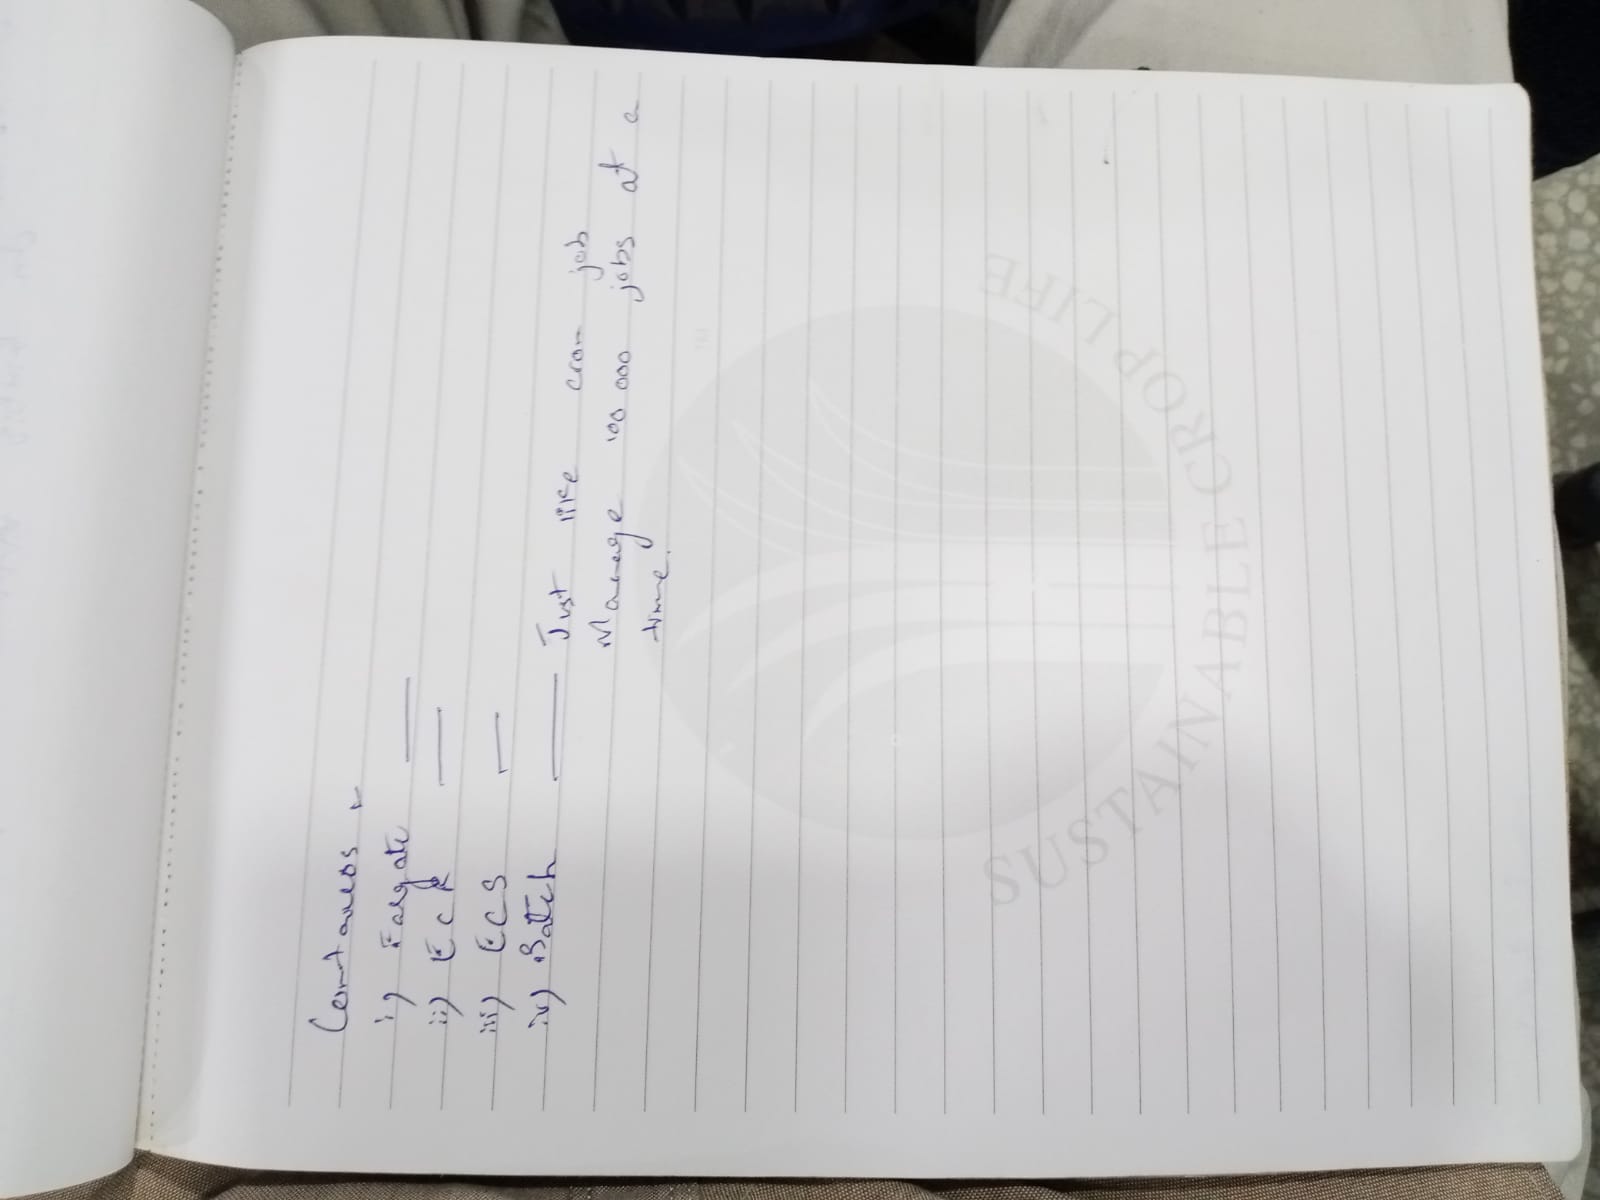 Containers :-
i) Fargate —
ii) ECR —
iii) ECS —
iv) Batch — Just like cron job
Manage 100 000 jobs at a
time.
SUSTAINABLE CROP LIFE